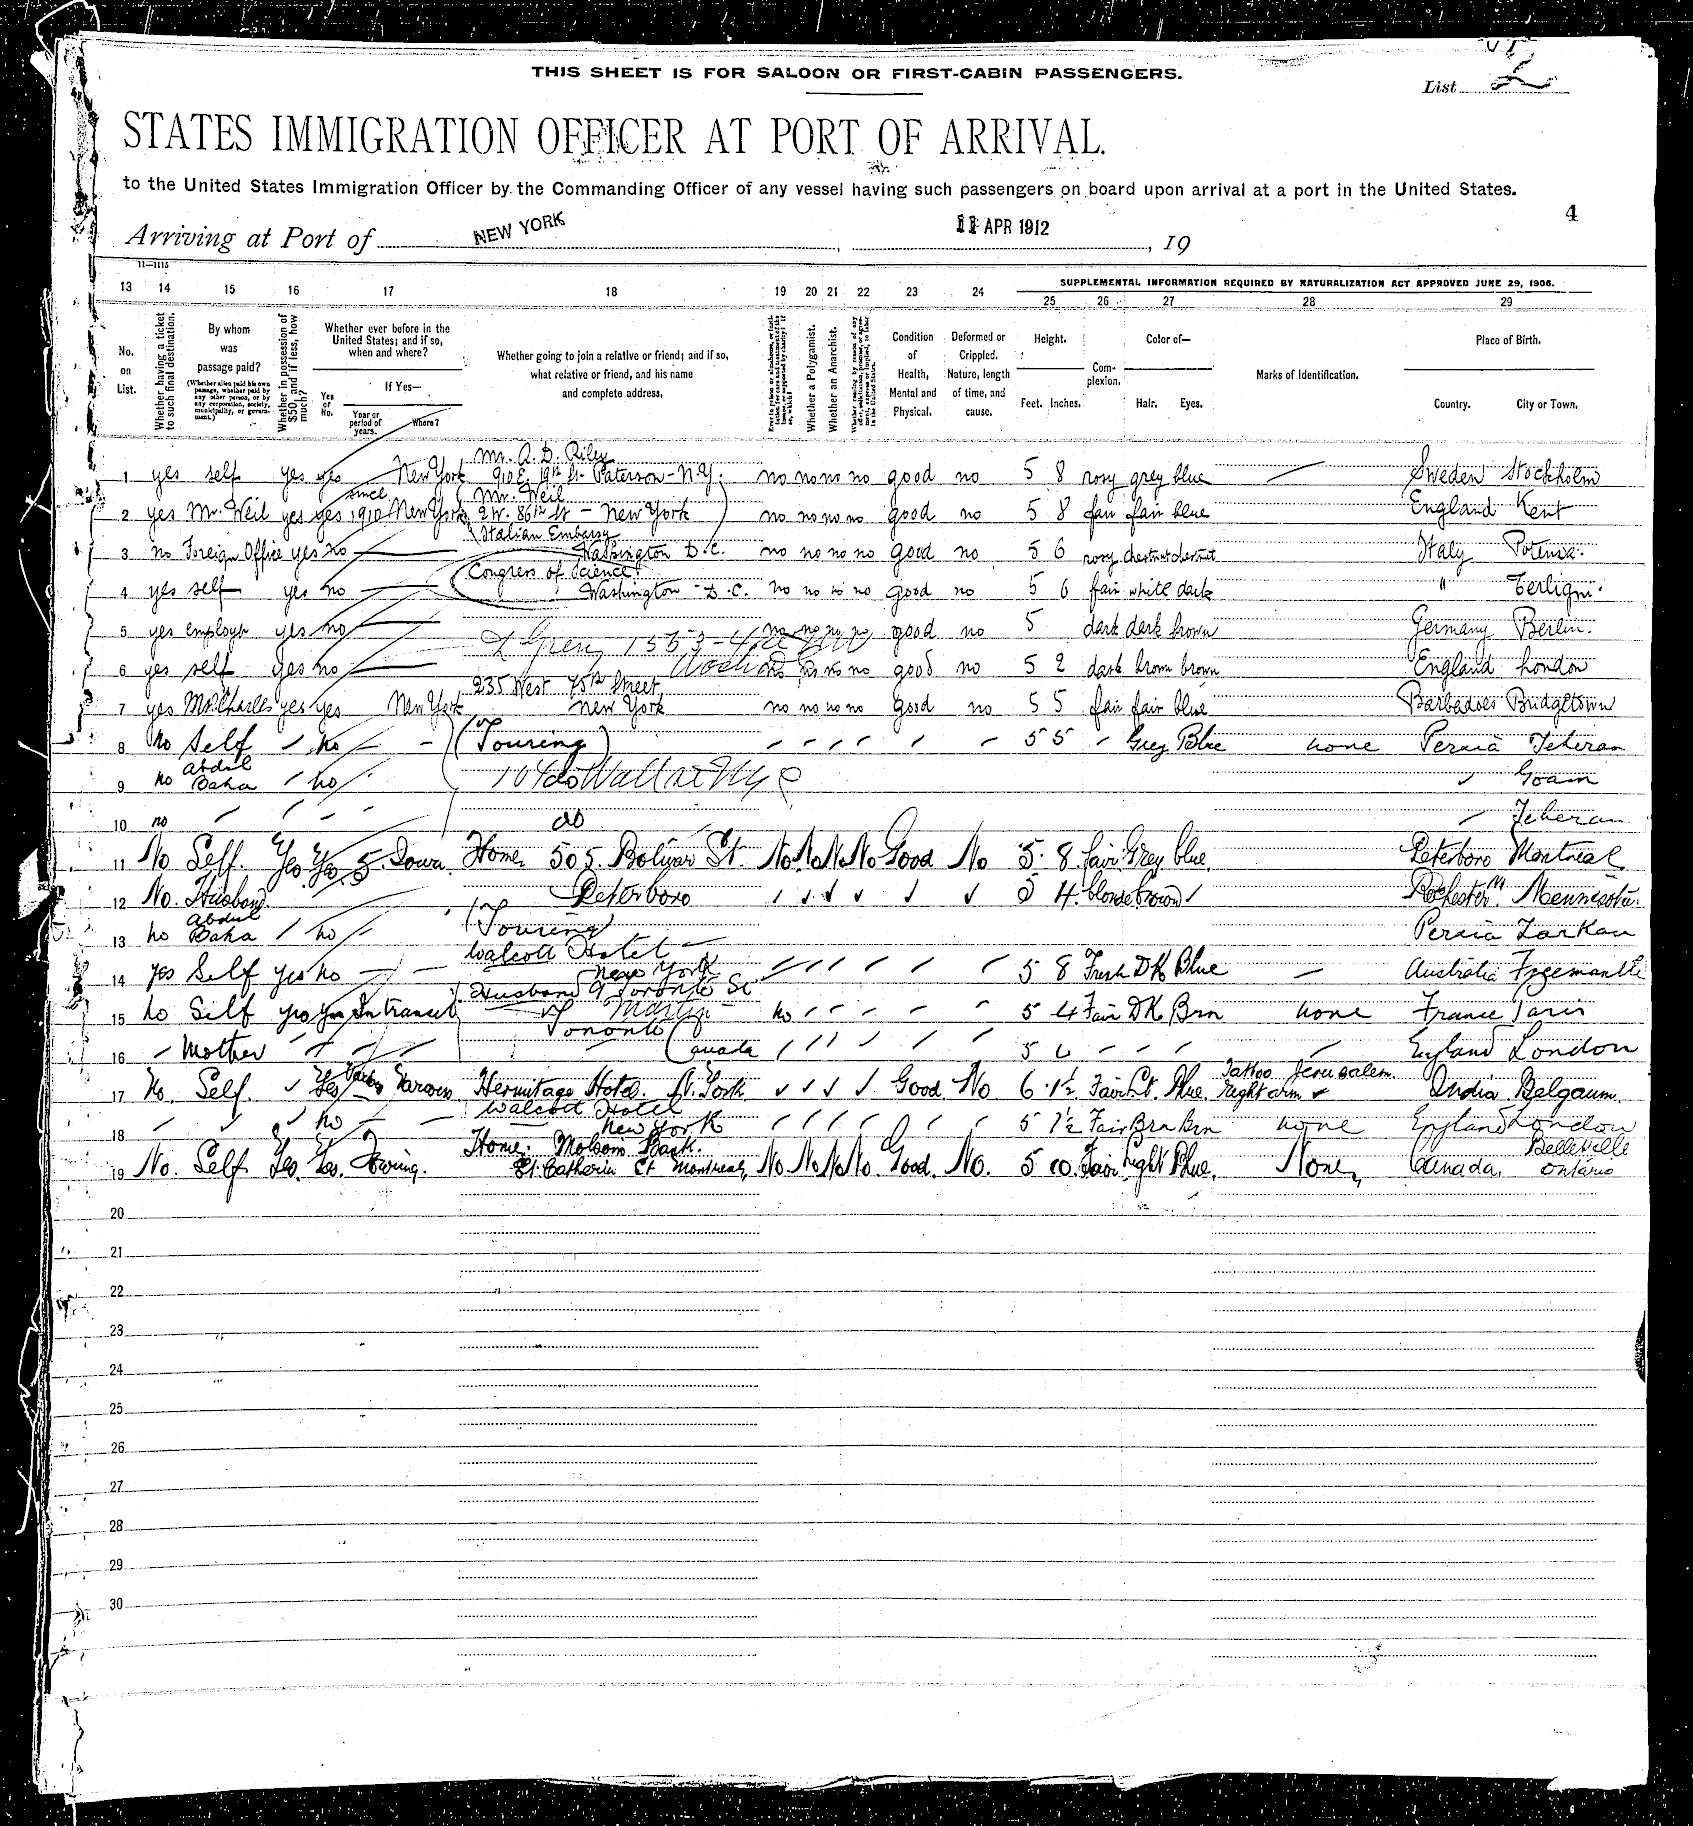 THIS SHEET IS FOR SALOON OR FIRST-CABIN PASSENGERS.
List
STATES IMMIGRATION OFFICER AT PORT OF ARRIVAL.
to the United States Immigration Officer by the Commanding Officer of any vessel having such passengers on board upon arrival at a port in the United States.
4
Arriving at Port of NEW YORK, 11 APR 1912, 19
11—1115
SUPPLEMENTAL INFORMATION REQUIRED BY NATURALIZATION ACT APPROVED JUNE 29, 1906.
13 14 15 16 17 18 19 20 21 22 23 24 25 26 27 28 29
No. on List.
Whether having a ticket to such final destination.
By whom was passage paid?
(Whether alien paid his own passage, whether paid by any other person, or by any corporation, society, municipality, or government.)
Whether in possession of $50, and if less, how much?
Whether ever before in the United States; and if so, when and where?
Yes or No.
If Yes—
Year or period of years.
Where?
Whether going to join a relative or friend; and if so, what relative or friend, and his name and complete address.
Whether a Polygamist.
Whether an Anarchist.
Condition of Health, Mental and Physical.
Deformed or Crippled. Nature, length of time, and cause.
Height.
Feet. Inches.
Complexion.
Color of—
Hair. Eyes.
Marks of Identification.
Place of Birth.
Country. City or Town.
Mr. A. D. Riley
1 yes self yes yes New York 910 E. 19th St. Paterson - N.Y. no no no no good no 5 8 rosy grey blue Sweden Stockholm
since Mr. Weil
2 yes Mr. Weil yes yes 1910 New York 2 W. 86th St - New York no no no no good no 5 8 fair fair blue England Kent
Italian Embassy
3 no Foreign Office yes no Washington D.C. no no no no good no 5 6 rosy chestnut chestnut Italy Potenza.
Congress of Science
4 yes self yes no Washington - D.C. no no no no good no 5 6 fair white dark " Terlizzi.
5 yes employer yes no no no no no good no 5 dark dark brown Germany Berlin.
6 yes self yes no no no no no good no 5 2 dark brown brown England London
235 West 75th Street,
7 yes Mr. Charles yes yes New York New York no no no no good no 5 5 fair fair blue Barbadoes Bridgetown
8 No Self no (Touring) 5 5 Grey Blue none Persia Teheran
Abdul
9 no Baha no do Goam
10 no do Teheran
11 No Self. Yes Yes 5 Iowa. Home, 505. Bolivar St. No No No No Good No 5. 8. fair Grey blue. Peterboro Montreal
12 No. Husband. Peterboro 5 4. blonde brown Rochester Mennesota.
Abdul
13 no Baha no (Touring) Persia Zarkan
Walcott Hotel
14 yes Self yes no New York 5 8 Fresh DK Blue Australia Freemantle
Husband 9 Toronto St
15 no Self yes yes In transit Toronto no 5 4 Fair DK Brn none France Paris
16 Mother Canada 5 6 England London
Tattoo Jerusalem.
17 No. Self. Yes Various Hermitage Hotel. N. York Good No 6. 1½ Fair Lt. Blue. right arm India Belgaum.
Walcott Hotel
18 no New York 5 7½ Fair Brn Brn none England London
Home. Molsons Bank. Belleville
19 No. Self. Yes. Yes. St. Catherin St Montreal, No. No No No. Good. No. 5 10. Fair Light Blue. None, Canada, Ontario
20
21
22
23
24
25
26
27
28
29
30